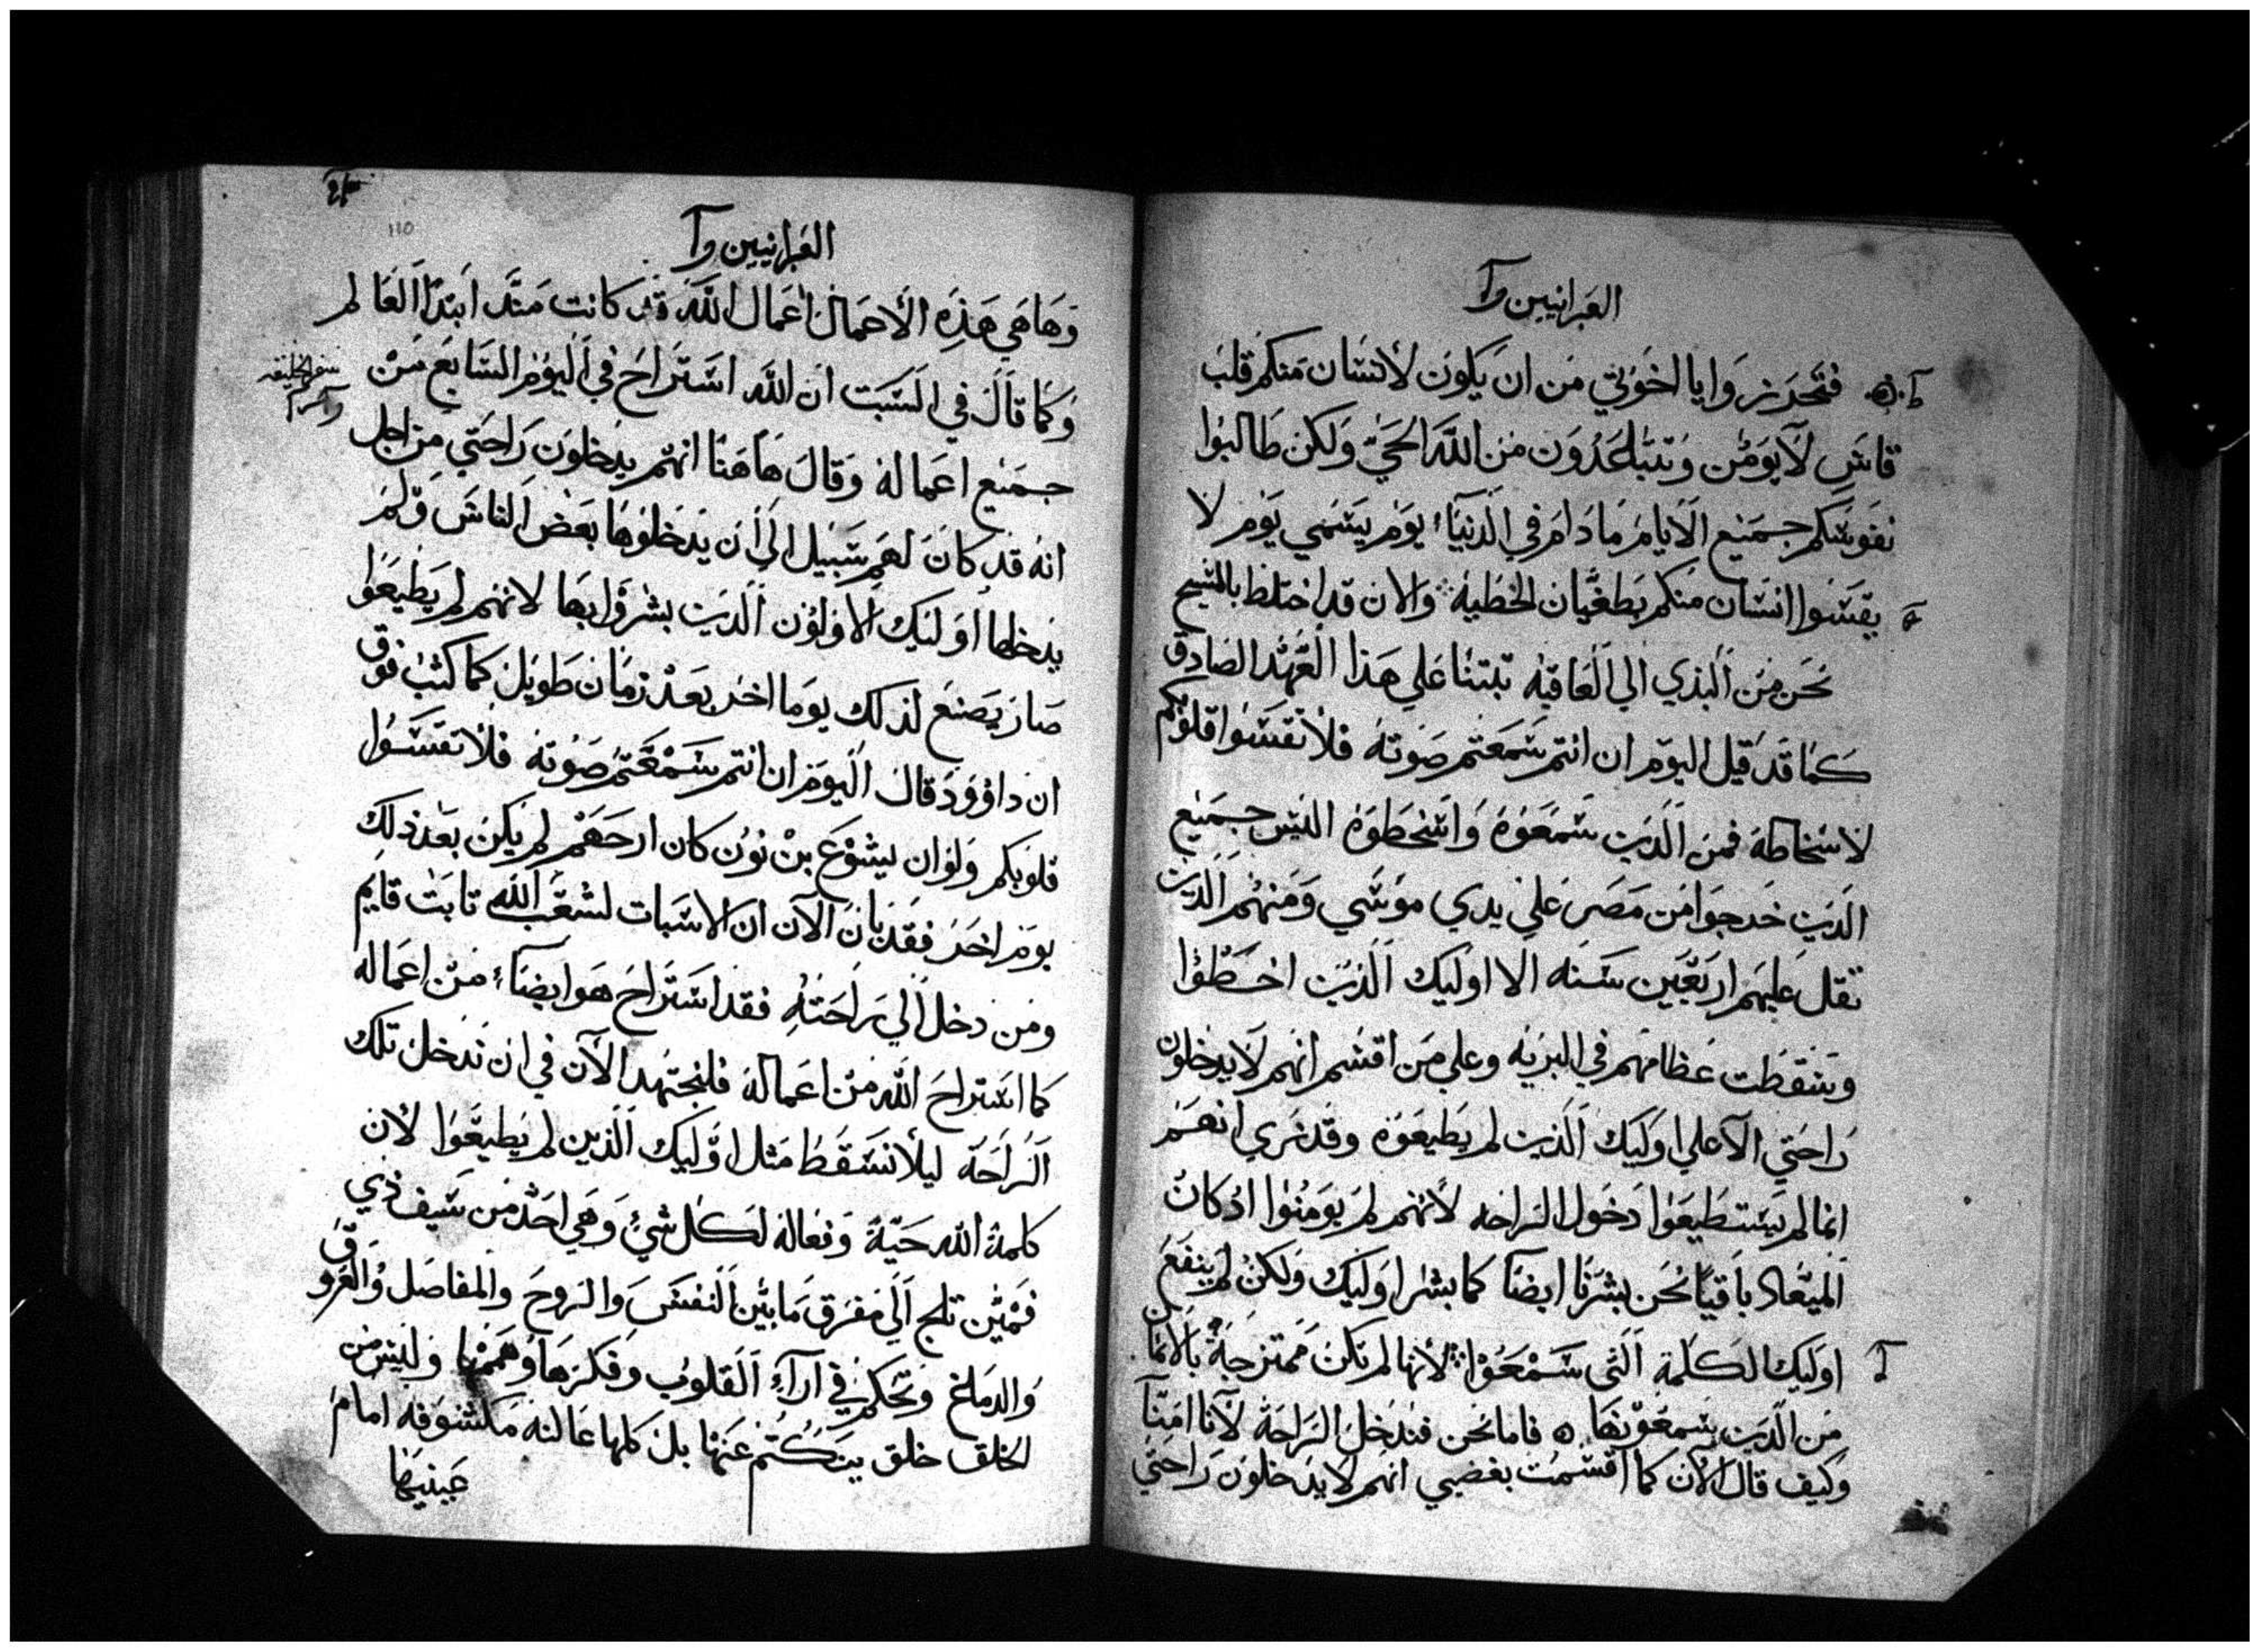 العبرانيين وآ
فتحدزوا يا اخوتي من ان يكون لانسان منكم قلب
قاس لا يومن وتتباعدون من الله الحي ولكن طالبوا
نفوسكم جميع الايام ما دام في الدنياء يوم يسمي يوم لا
يقسوا انسان منكم بطغيان الخطية والان قد اختلطنا بالمسيح
نحن من البذي الي العاقبه تبتنا علي هذا العهد الصادق
كما قد قيل اليوم ان انتم سمعتم صوته فلا تقسوا قلوبكم
لاسخاطه فمن الدين سمعوه واسخطوه اليس جميع
الدين خرجوا من مصر علي يدي موسي ومنهم الدين
تقل عليهم اربعين سنه الا اوليك الدين اخطوا
وسقطت عظامهم في البريه وعلي من اقسم انهم لا يدخلون
راحتي الا علي اوليك الدين لم يطيعوه وقد نري انهم
انما لم يستطيعوا دخول الراحه لانهم لم يومنوا اد كان
الميعاد باقيا نحن بشرنا ايضا كما بشرا وليك ولكن لم ينفع
اوليك الكلمة التي سمعوا لانها لم تكن ممتزجة بالايمان
من الدين سمعوها فاما نحن فندخل الراحة لانا امنا
وكيف قال الان كما اقسمت بغضبي انهم لا يدخلون راحتي
العبرانيين وآ
١١٥
وهاهي هذه الاعمال اعمال الله قد كانت مند ابتدا العالم
وكما قال في السبت ان الله استراح في اليوم السابع من
سفر الخليقه
جميع اعماله وقال هاهنا انهم يدخلون راحتي من اجل
انه قد كان لهم سبيل الي ان يدخلوها بعض الناس ولم
يدخلها اوليك الاولون الدين بشروا بها لانهم لم يطيعوا
صار يصنع لذلك يوما اخر بعد زمان طويل كما كتب فوق
ان داوود قال اليوم ان انتم سمعتم صوته فلا تقسوا
قلوبكم ولو ان يشوع بن نون كان ارحهم لم يكن بعد ذلك
يوم اخر فقد بان الآن ان الاسبات لشعب الله تابت قايم
ومن دخل الي راحته فقد استراح هو ايضاء من اعماله
كما استراح الله من اعماله فلنجتهد الآن في ان ندخل تلك
الراحه ليلا نسقط مثل اوليك الذين لم يطيعوا لان
كلمة الله حية وفعاله لكل شئ وهي احد من سيف ذي
فمين تلج الي مفرق ما بين النفس والروح والمفاصل والعروق
والدماغ وتحكم في اراء القلوب وفكرها وهممها وليس من
الخلق خلق ينكتم عنها بل كلها عالنه مكشوفه امام
عينيها